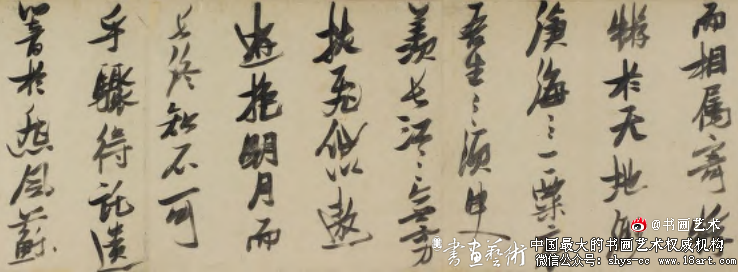 而相属寄
蝣於天地
滄海之一粟
吾生之須臾
羨長江之無窮
挾飛仙以遨
遊抱明月而
長終知不可
乎驟得託遺
響於悲風蘇
@书画艺术
書畫藝術
中国最大的书画艺术权威机构
微信公众号: shys-cc www.18art.com